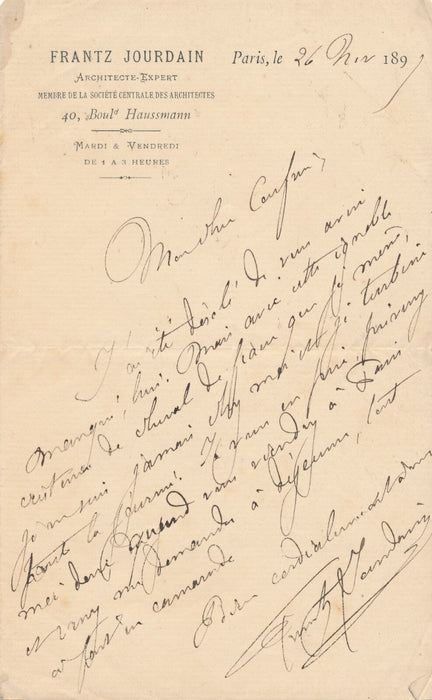 FRANTZ JOURDAIN
ARCHITECTE-EXPERT
MEMBRE DE LA SOCIÉTÉ CENTRALE DES ARCHITECTES
40, Boulᵈ Haussmann
MARDI & VENDREDI
DE 1 A 3 HEURES
Paris, le 26 Nov 1897
Mon cher Confrère,
J'ai été désolé de vous avoir
manqué, hier. Mais avec cette ignoble
existence de cheval de fiacre que je mène,
je ne suis jamais chez moi et je turbine
toute la journée. Je vous en prie, prévenez
moi donc quand vous viendrez à Paris
et venez me demander à déjeuner, tout
à fait en camarade
Bien cordialement à vous
Frantz Jourdain